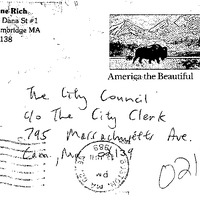 ne Rich
Dana St #1
mbridge MA
138
America the Beautiful
The City Council
c/o The City Clerk
795 Massachusetts Ave.
Cam. MA 02139
021
PM
1989